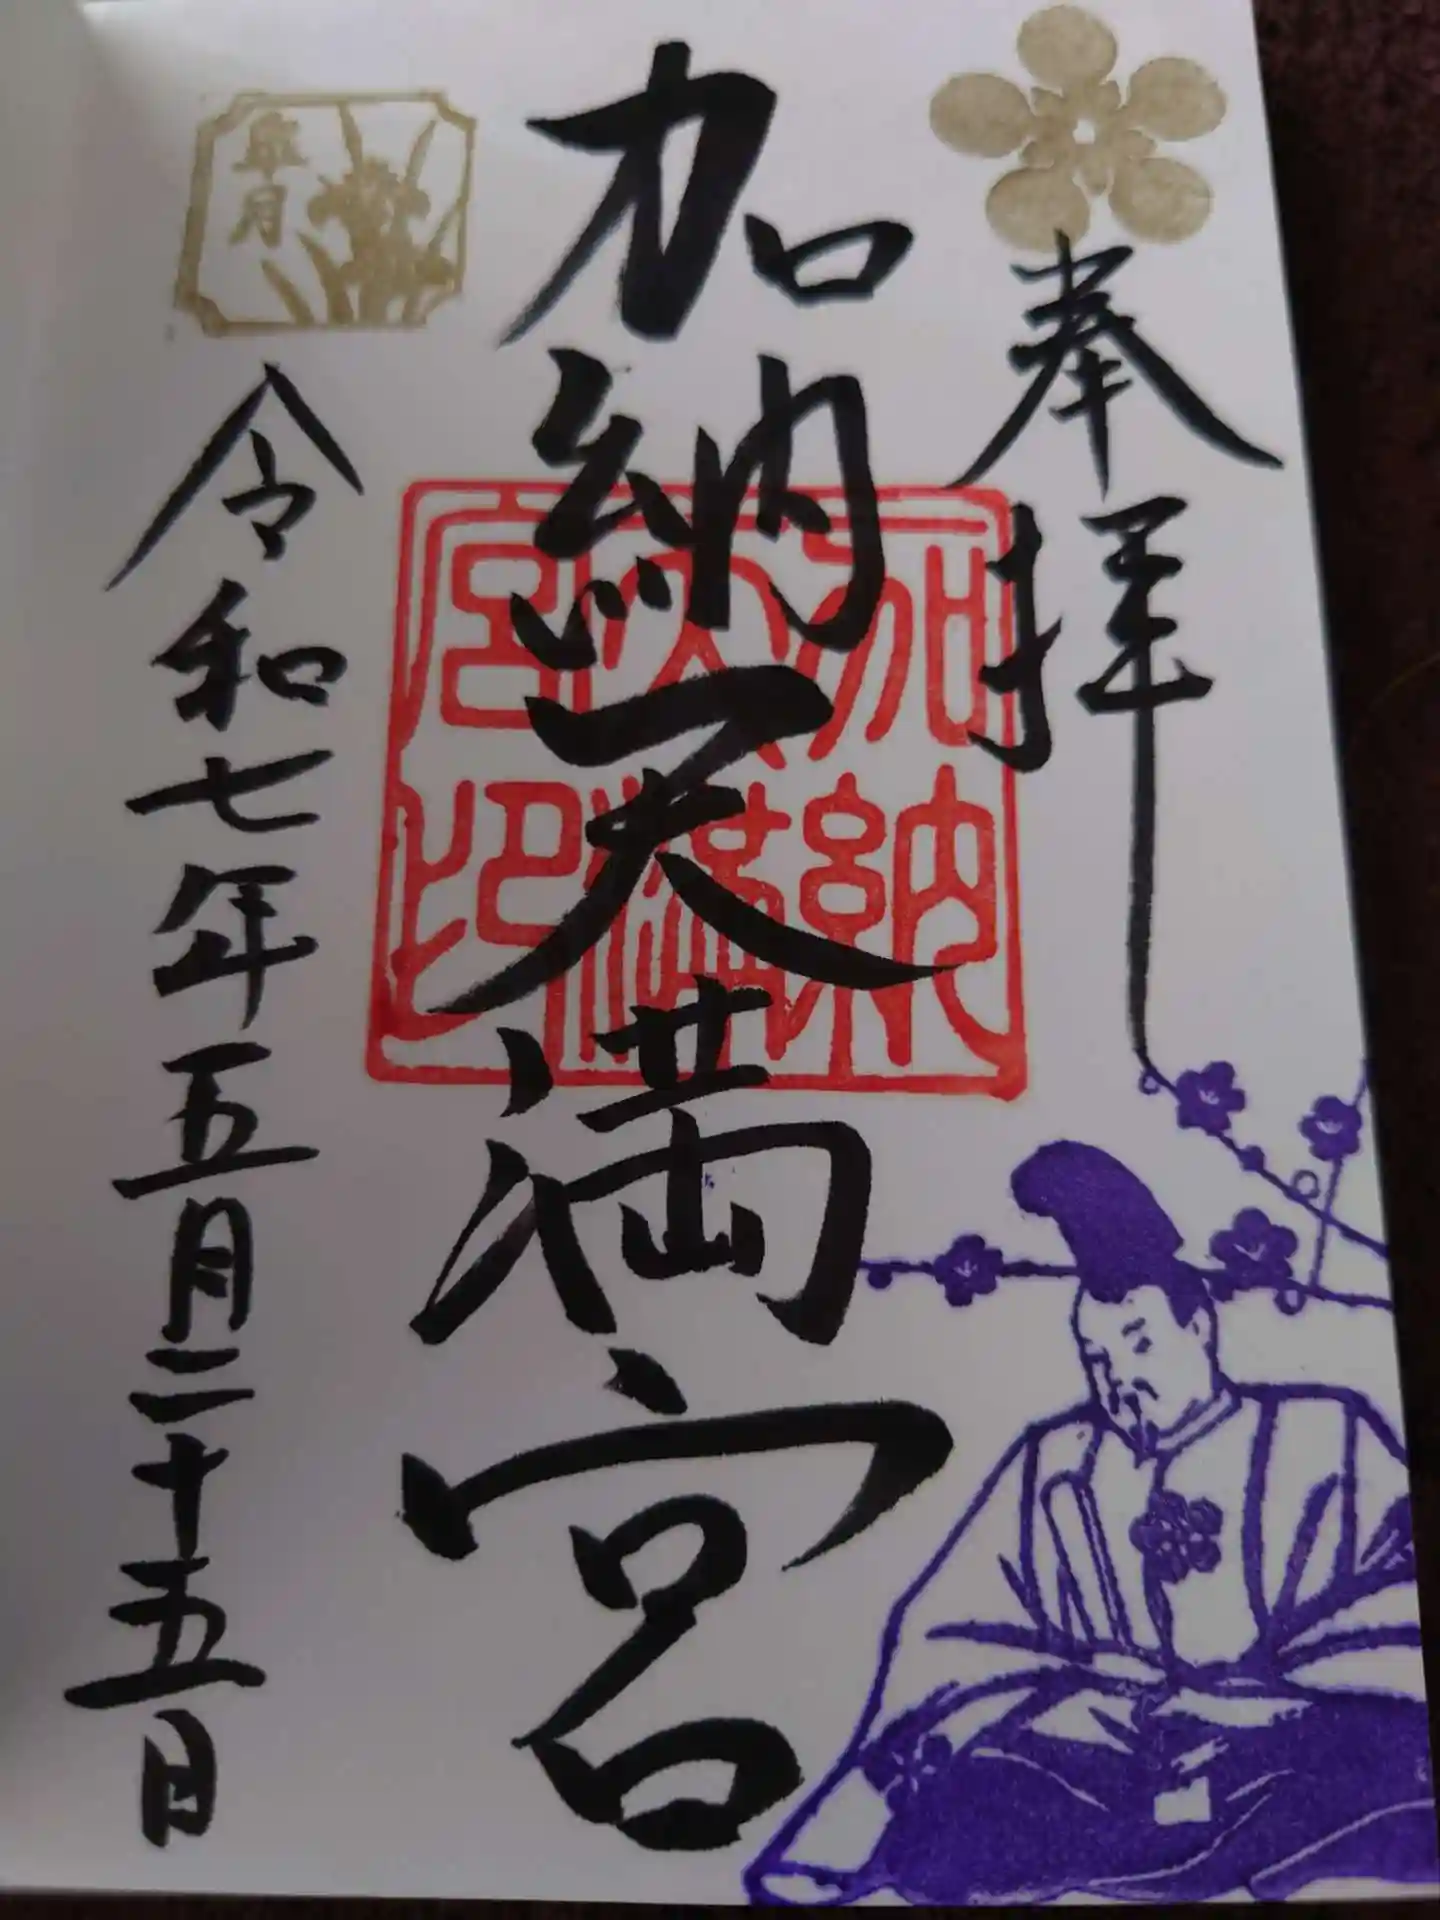 奉拝
加納天満宮
加納天満宮印
皐月
令和七年五月二十五日